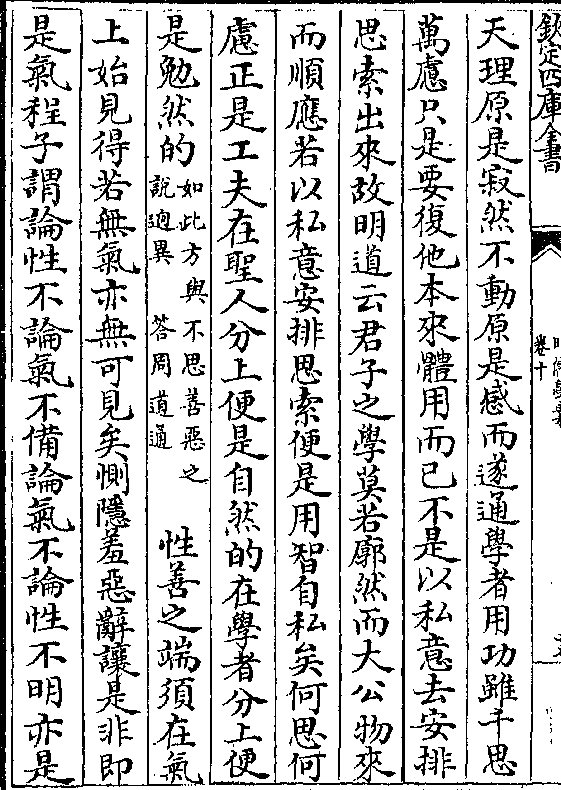 欽定四庫全書
卷十
天理原是寂然不動原是感而遂通學者用功雖千思
萬慮只是要復他本來體用而已不是以私意去安排
思索出來故明道云君子之學莫若廓然而大公物來
而順應若以私意安排思索便是用智自私矣何思何
慮正是工夫在聖人分上便是自然的在學者分上便
是勉然的如此方與不思善惡之說逈異 答周道通 性善之端須在氣
上始見得若無氣亦無可見矣惻隱羞惡辭讓是非即
是氣程子謂論性不論氣不備論氣不論性不明亦是